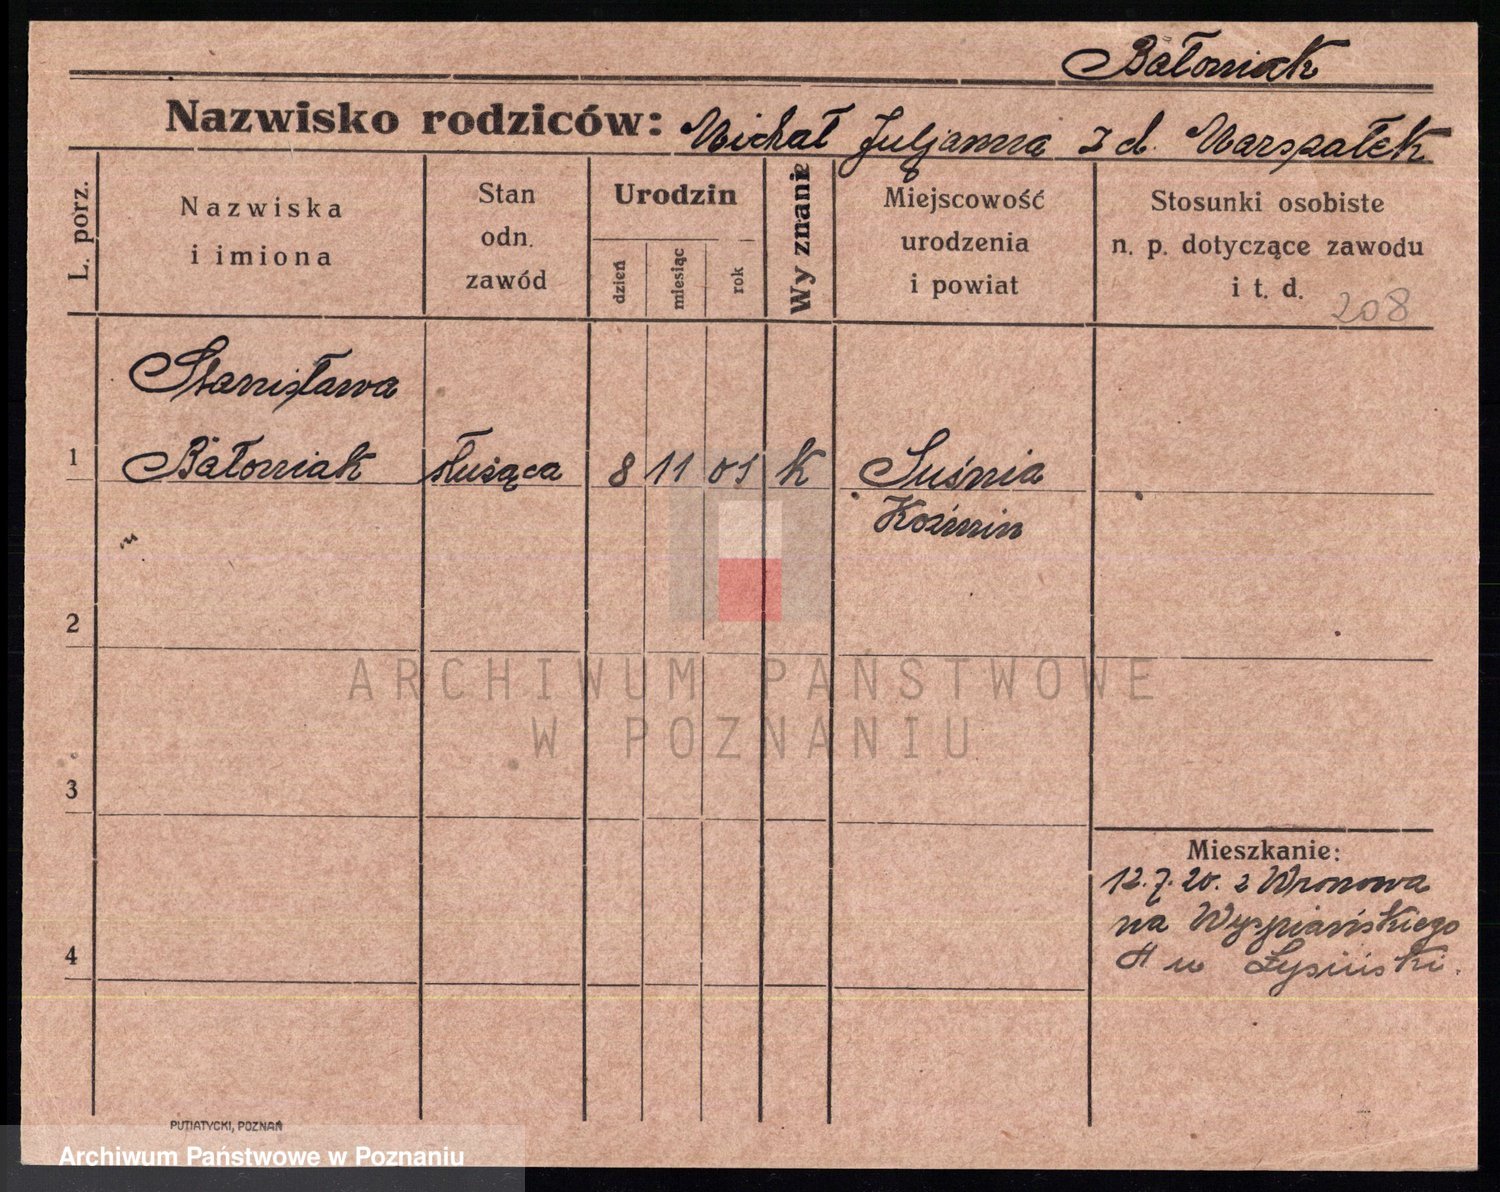 Bałoniak
Nazwisko rodziców: Michał Juljanna z d. Marszałek
L. porz.
Nazwiska
i imiona
Stan
odn.
zawód
Urodzin
dzień
miesiąc
rok
Wyznanie
Miejscowość
urodzenia
i powiat
Stosunki osobiste
n. p. dotyczące zawodu
i t. d.
208
Stanisława
1 Bałoniak służąca 8 11 01 k Suśnia
Koźmin
2
ARCHIWUM PAŃSTWOWE
W POZNANIU
3
Mieszkanie:
12.7.20. z Wronowa
na Wyspiańskiego
4
u Łysiński.
PUTIATYCKI, POZNAŃ
Archiwum Państwowe w Poznaniu